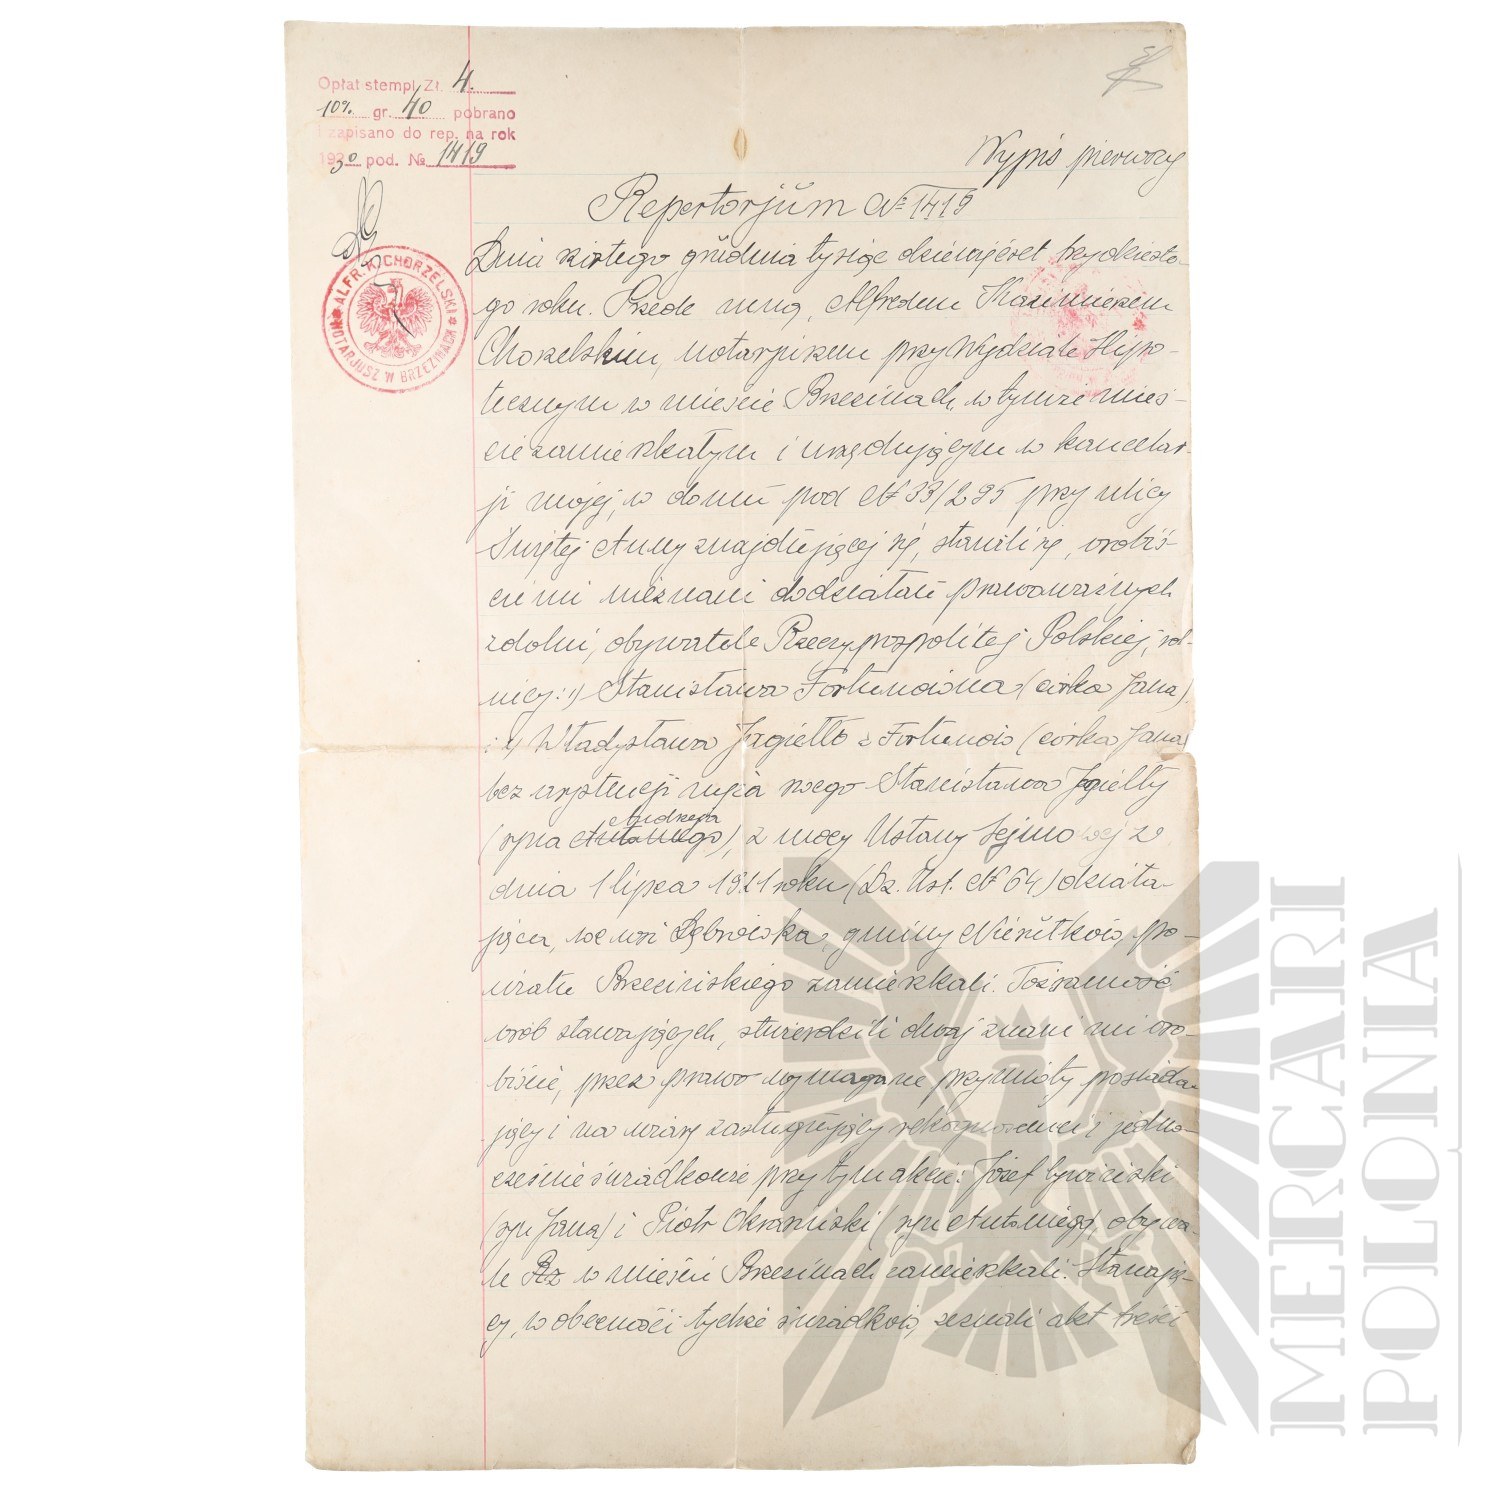 Opłat stempl. Zł. 4.
10% gr. 40 pobrano
i zapisano do rep. na rok
1930 pod. № 1419
Wypis pierwszy
Repertorjum № 1419
ALFR. K. CHORZELSKI
NOTARJUSZ W BRZEZINACH
Dnia szóstego grudnia tysiąc dziewięćset trzydzieste-
go roku. Przede mną, Alfredem Kazimierzem
Chorzelskim, notarjuszem przy Wydziale Hipo-
tecznym w mieście Brzezinach, w tymże mieś-
cie zamieszkałym i urzędującym w kancelar-
ji mojej, w domu pod № 33/295 przy ulicy
Świętej Anny znajdującej się, stawili się, osobiś-
cie mi nieznani do działań prawoważnych
zdolni, obywatele Rzeczypospolitej Polskiej, rol-
nicy: 1) Stanisława Fortunówna (córka Jana)
i 2) Władysława Jagiełło z Fortunów (córka Jana)
bez asystencji męża swego Stanisława Jagiełły
Andrzeja
(syna Antoniego), z mocy Ustawy Sejmowej z
dnia 1 lipca 1921 roku (Dz. Ust. № 64) działa-
jąca, we wsi Dąbrówka, gminy Niesułków, po-
wiatu Brzezińskiego zamieszkali. Tożsamość
osób stawających, stwierdzili dwaj znani mi oso-
biście, przez prawo wymagane przymioty posiada-
jący i na wiarę zasługujący rekognoscenci i jedno-
cześnie świadkowie przy tym akcie: Józef
(syn Jana) i Piotr (syn Antoniego), obywa-
le Rz w mieście Brzezinach zamieszkali. Stawają-
cy, w obecności tychże świadków, zeznali akt treści
MERCARI
POLONIA